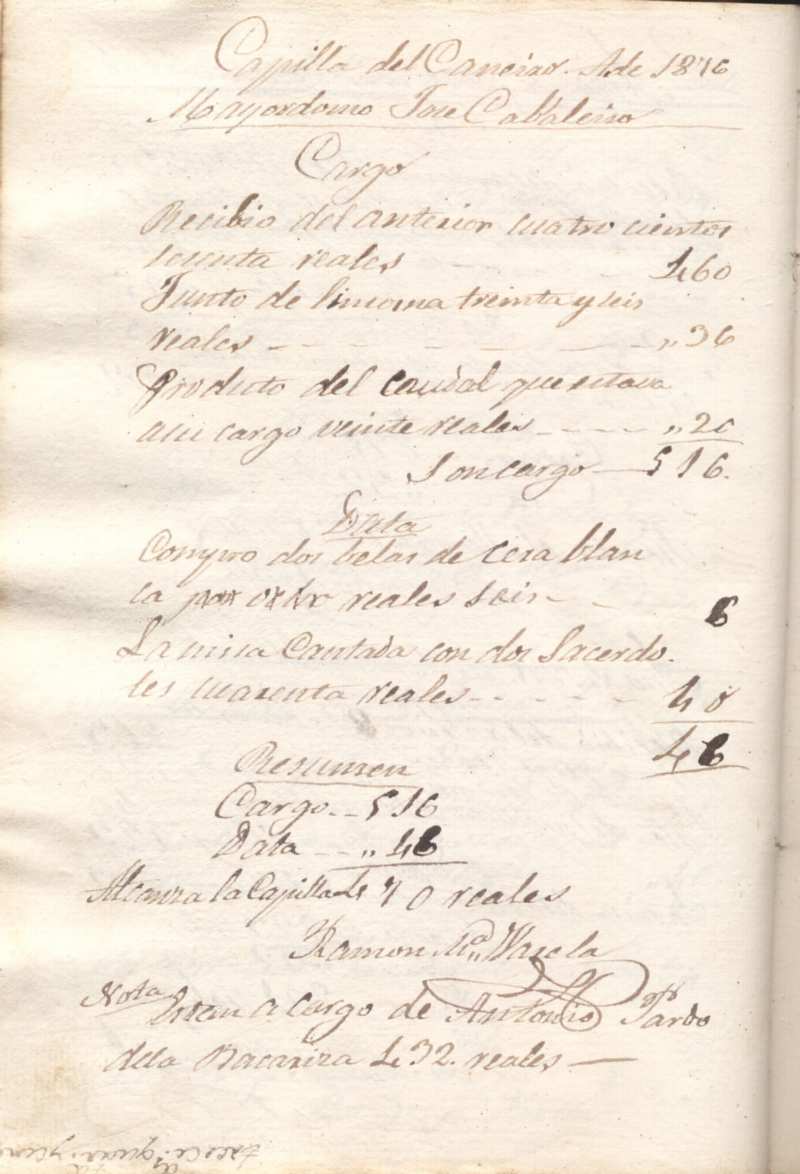 Capilla del Caneiro. A. de 1876
Mayordomo Jose Cabaleiro
Cargo
Recibio del anterior cuatro cientos
sesenta reales 460
Junto de limosna treinta y seis
reales 36
Produto del caudal que estava
a su cargo veinte reales 20
Son cargo 516.
Data
Compro dos belas de cera blan
ca reales seis 6
La misa Cantada con dos Sacerdo.
tes cuarenta reales 40
46
Resumen
Cargo 516
Data 46
Alcanza la Capilla 470 reales
Ramon Mª Varela
Nota Estan a cargo de Antonio Pardo
dela Bacariza 432. reales